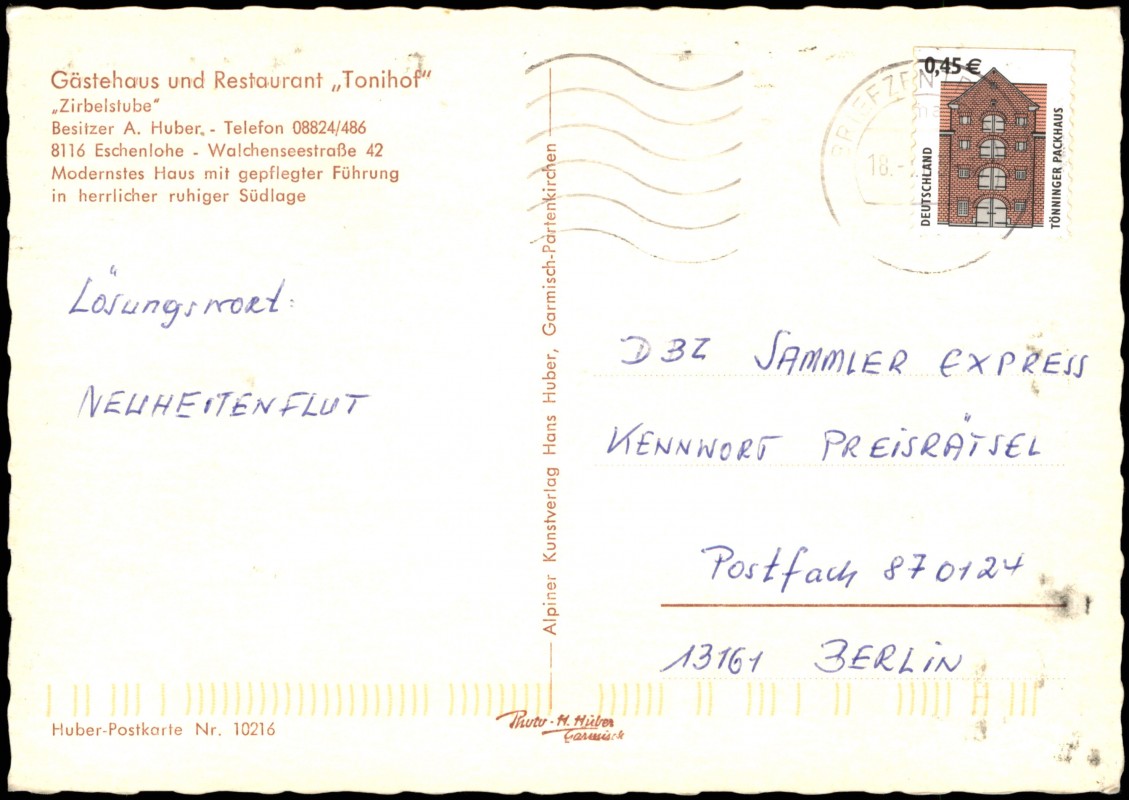 Gästehaus und Restaurant „Tonihof“
„Zirbelstube“
Besitzer A. Huber. - Telefon 08824/486
8116 Eschenlohe - Walchenseestraße 42
Modernstes Haus mit gepflegter Führung
in herrlicher ruhiger Südlage
Lösungswort:
NEUHEITENFLUT
Huber-Postkarte Nr. 10216
Alpiner Kunstverlag Hans Huber, Garmisch-Partenkirchen
Photo - H. Huber
Garmisch
18.
0,45 €
DEUTSCHLAND
TÖNNINGER PACKHAUS
DBZ SAMMLER EXPRESS
KENNWORT PREISRÄTSEL
Postfach 870124
13161 BERLIN